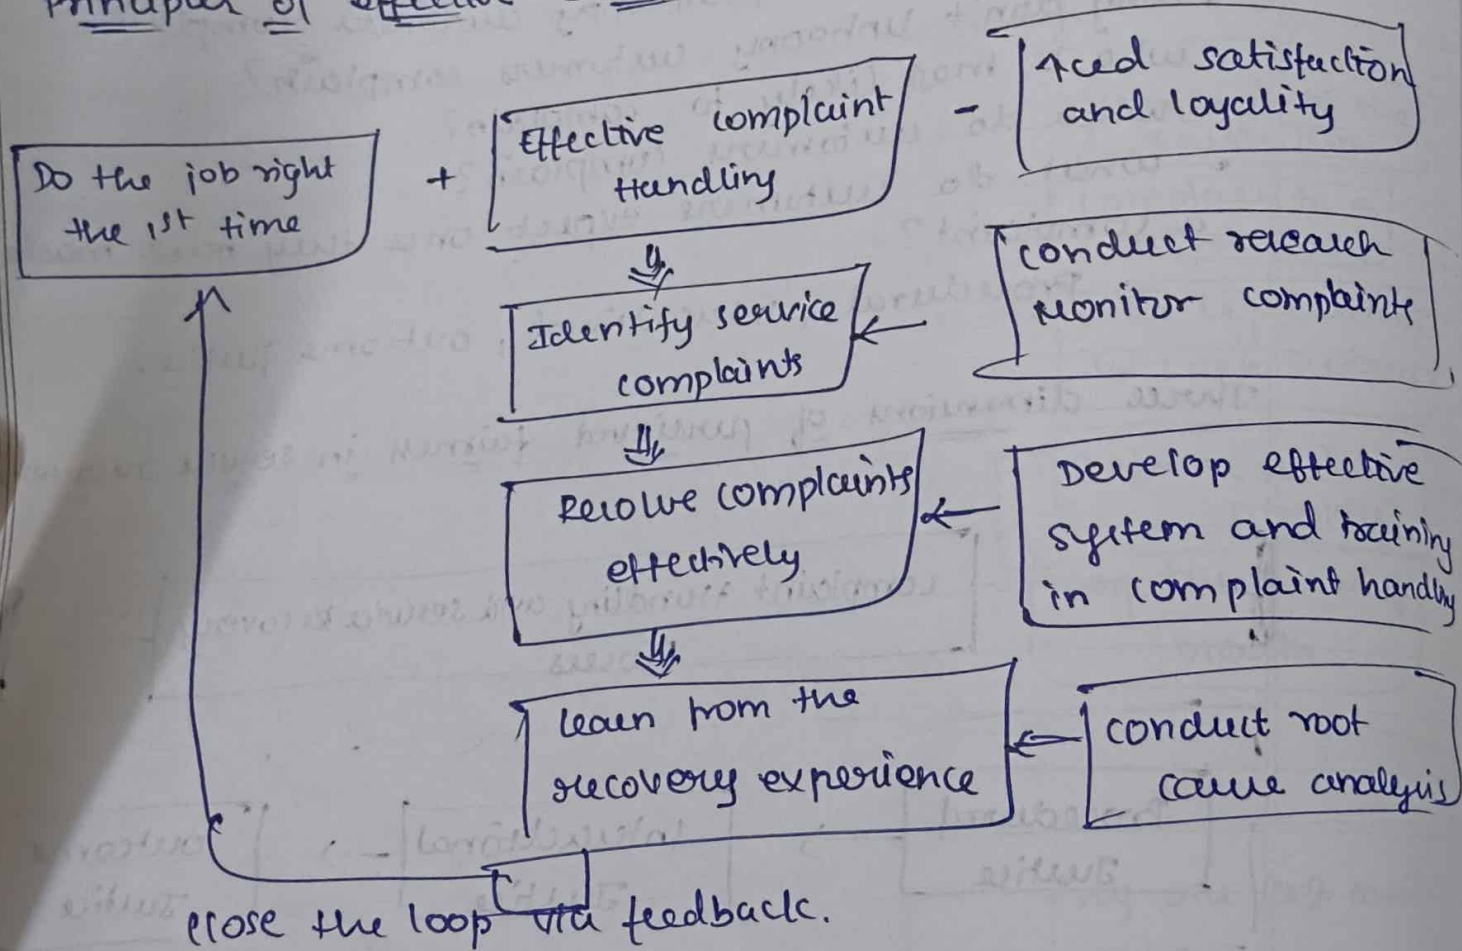 of
Do the job right
the 1st time
+
Effective complaint
Handling
-
↑ced satisfaction
and loyality
Identify service
complaints
conduct research
Monitor complaints
Resolve complaints
effectively
Develop effective
system and training
in complaint handling
learn from the
recovery experience
conduct root
cause analysis
close the loop via feedback.